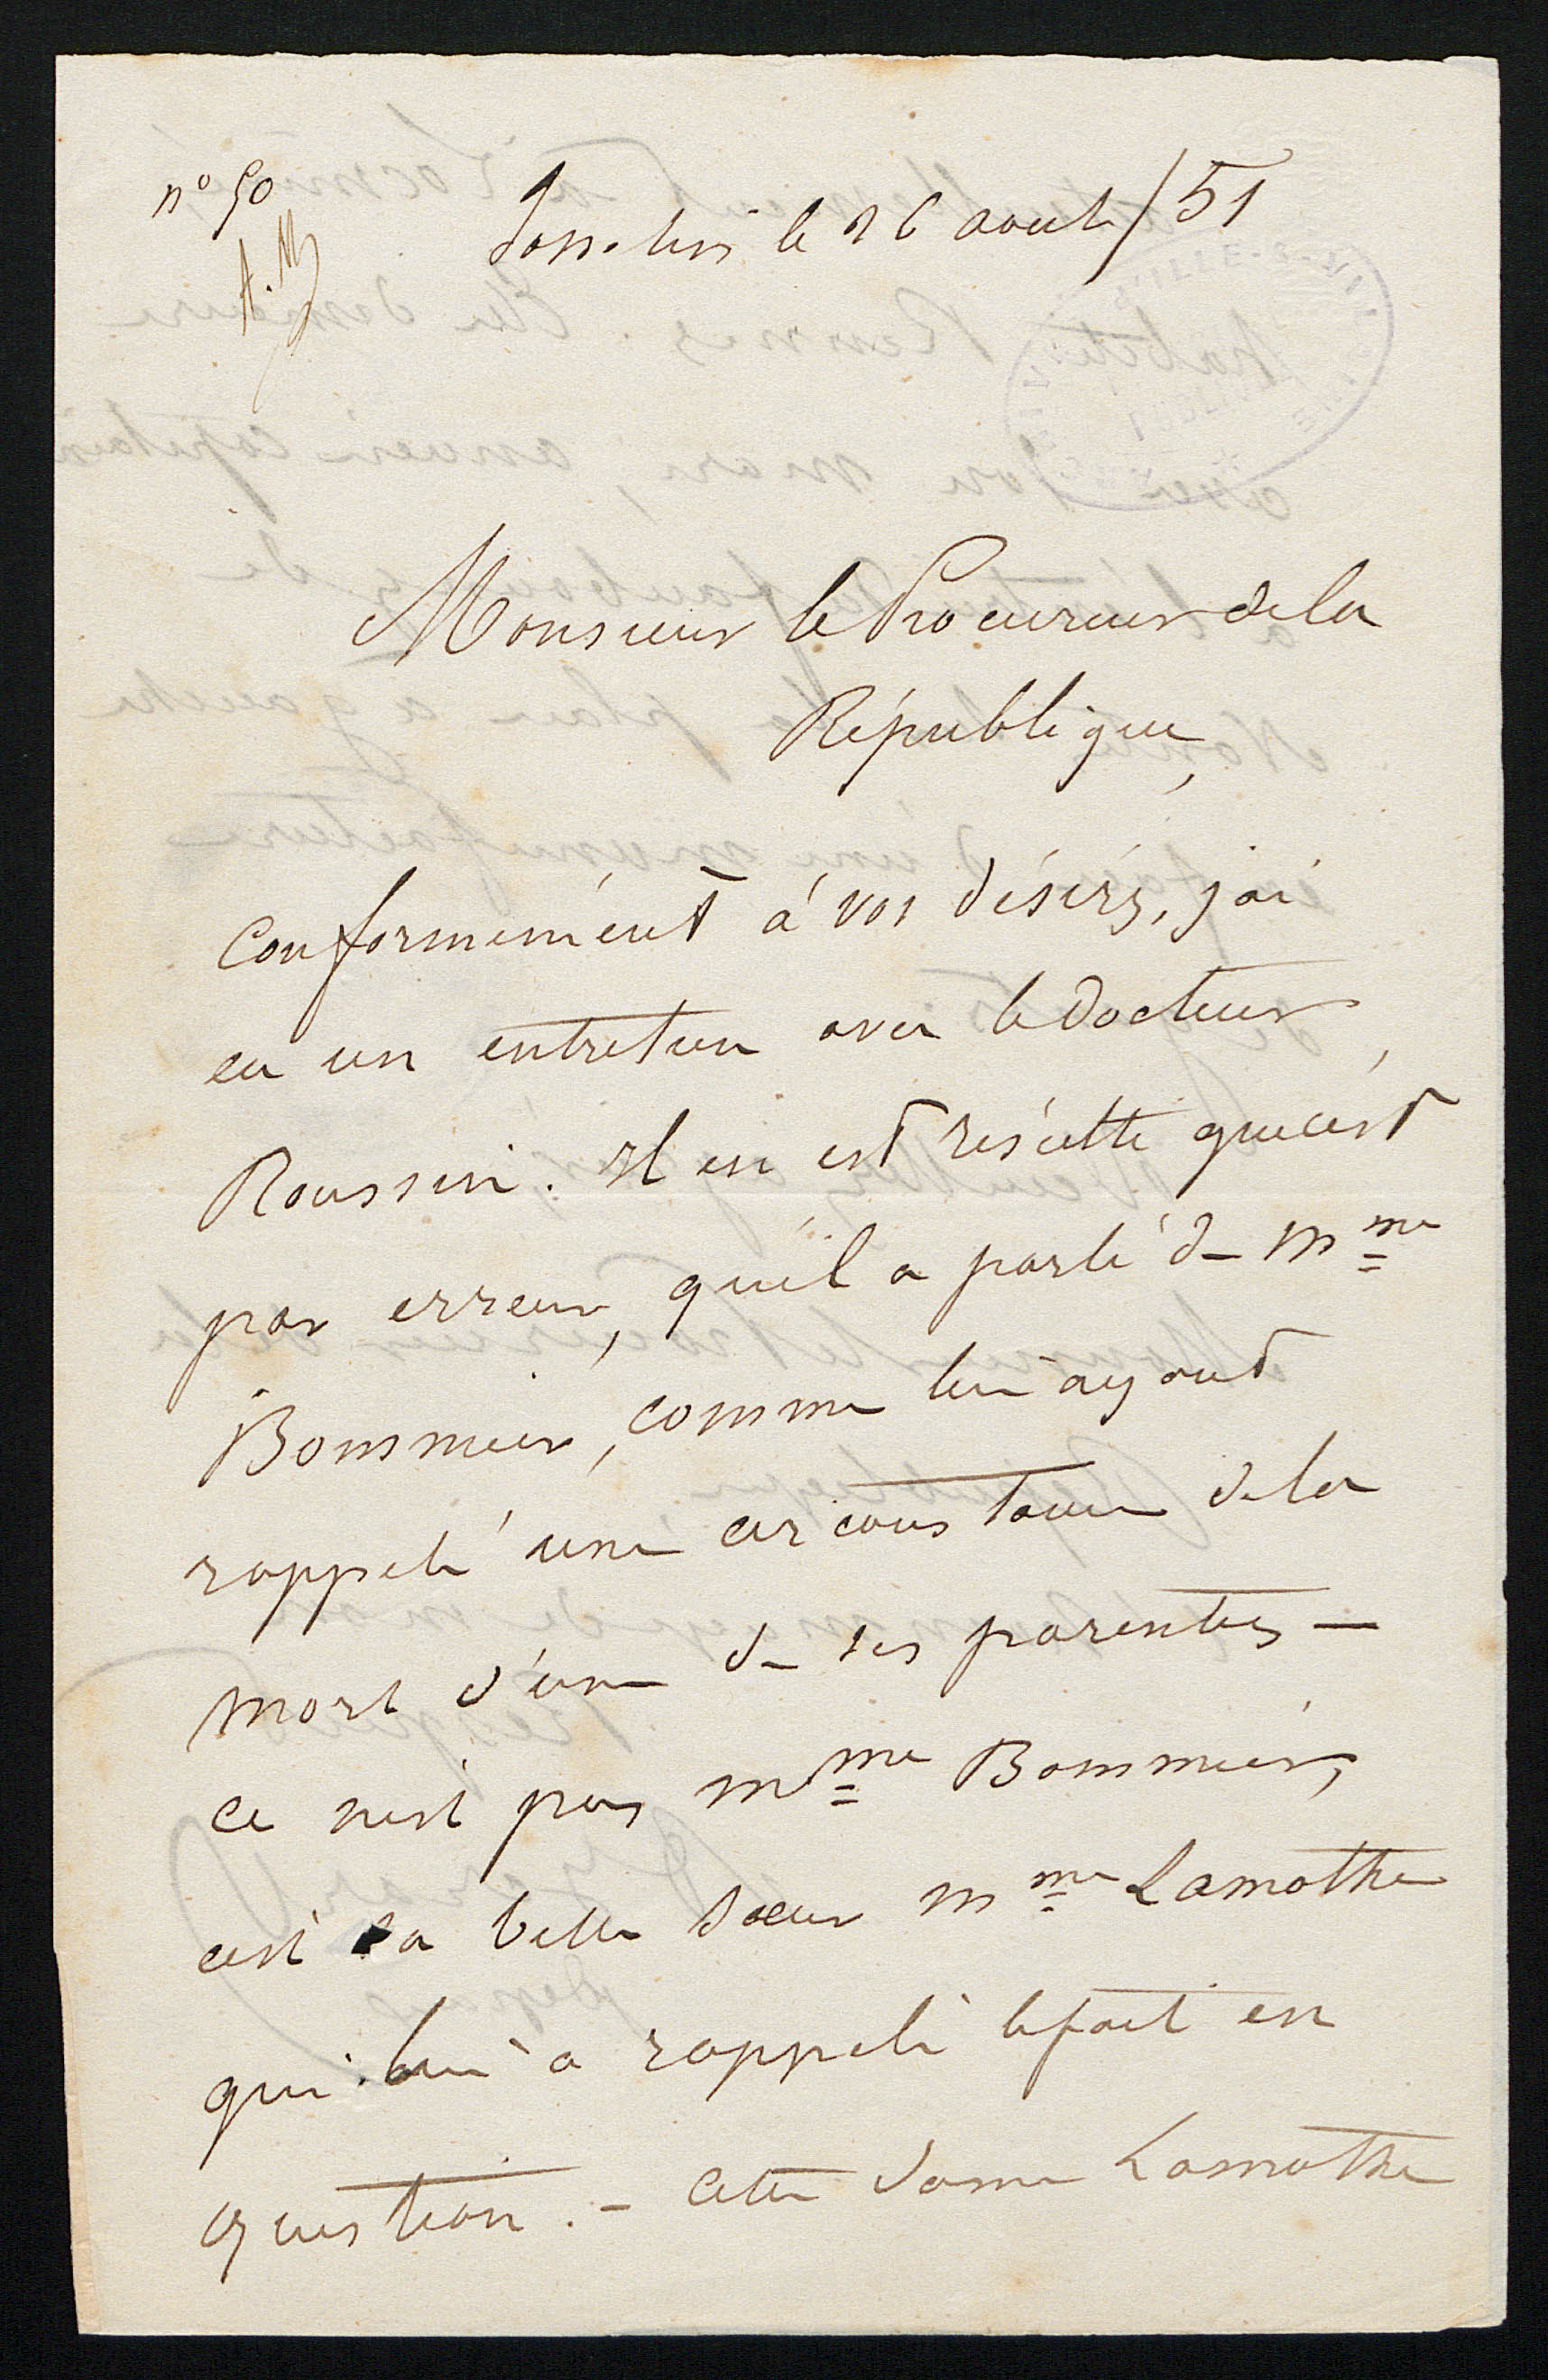 n° 50
A. M
Josselin le 26 aout / 51
Monsieur le Procureur de la
République,
Conformément à vos désirs, j'ai
eu un entretien avec le docteur
Roussin. Il en est résulté que c'est
par erreur, qu'il a parlé de Mme
Bommier, comme lui ayant
rappelé une circonstance de la
mort d'une de ses parentes —
ce n'est pas Mme Bommier,
c'est sa belle sœur Mme Lamothe
qui lui a rappelé le fait en
question. - Cette dame Lamothe